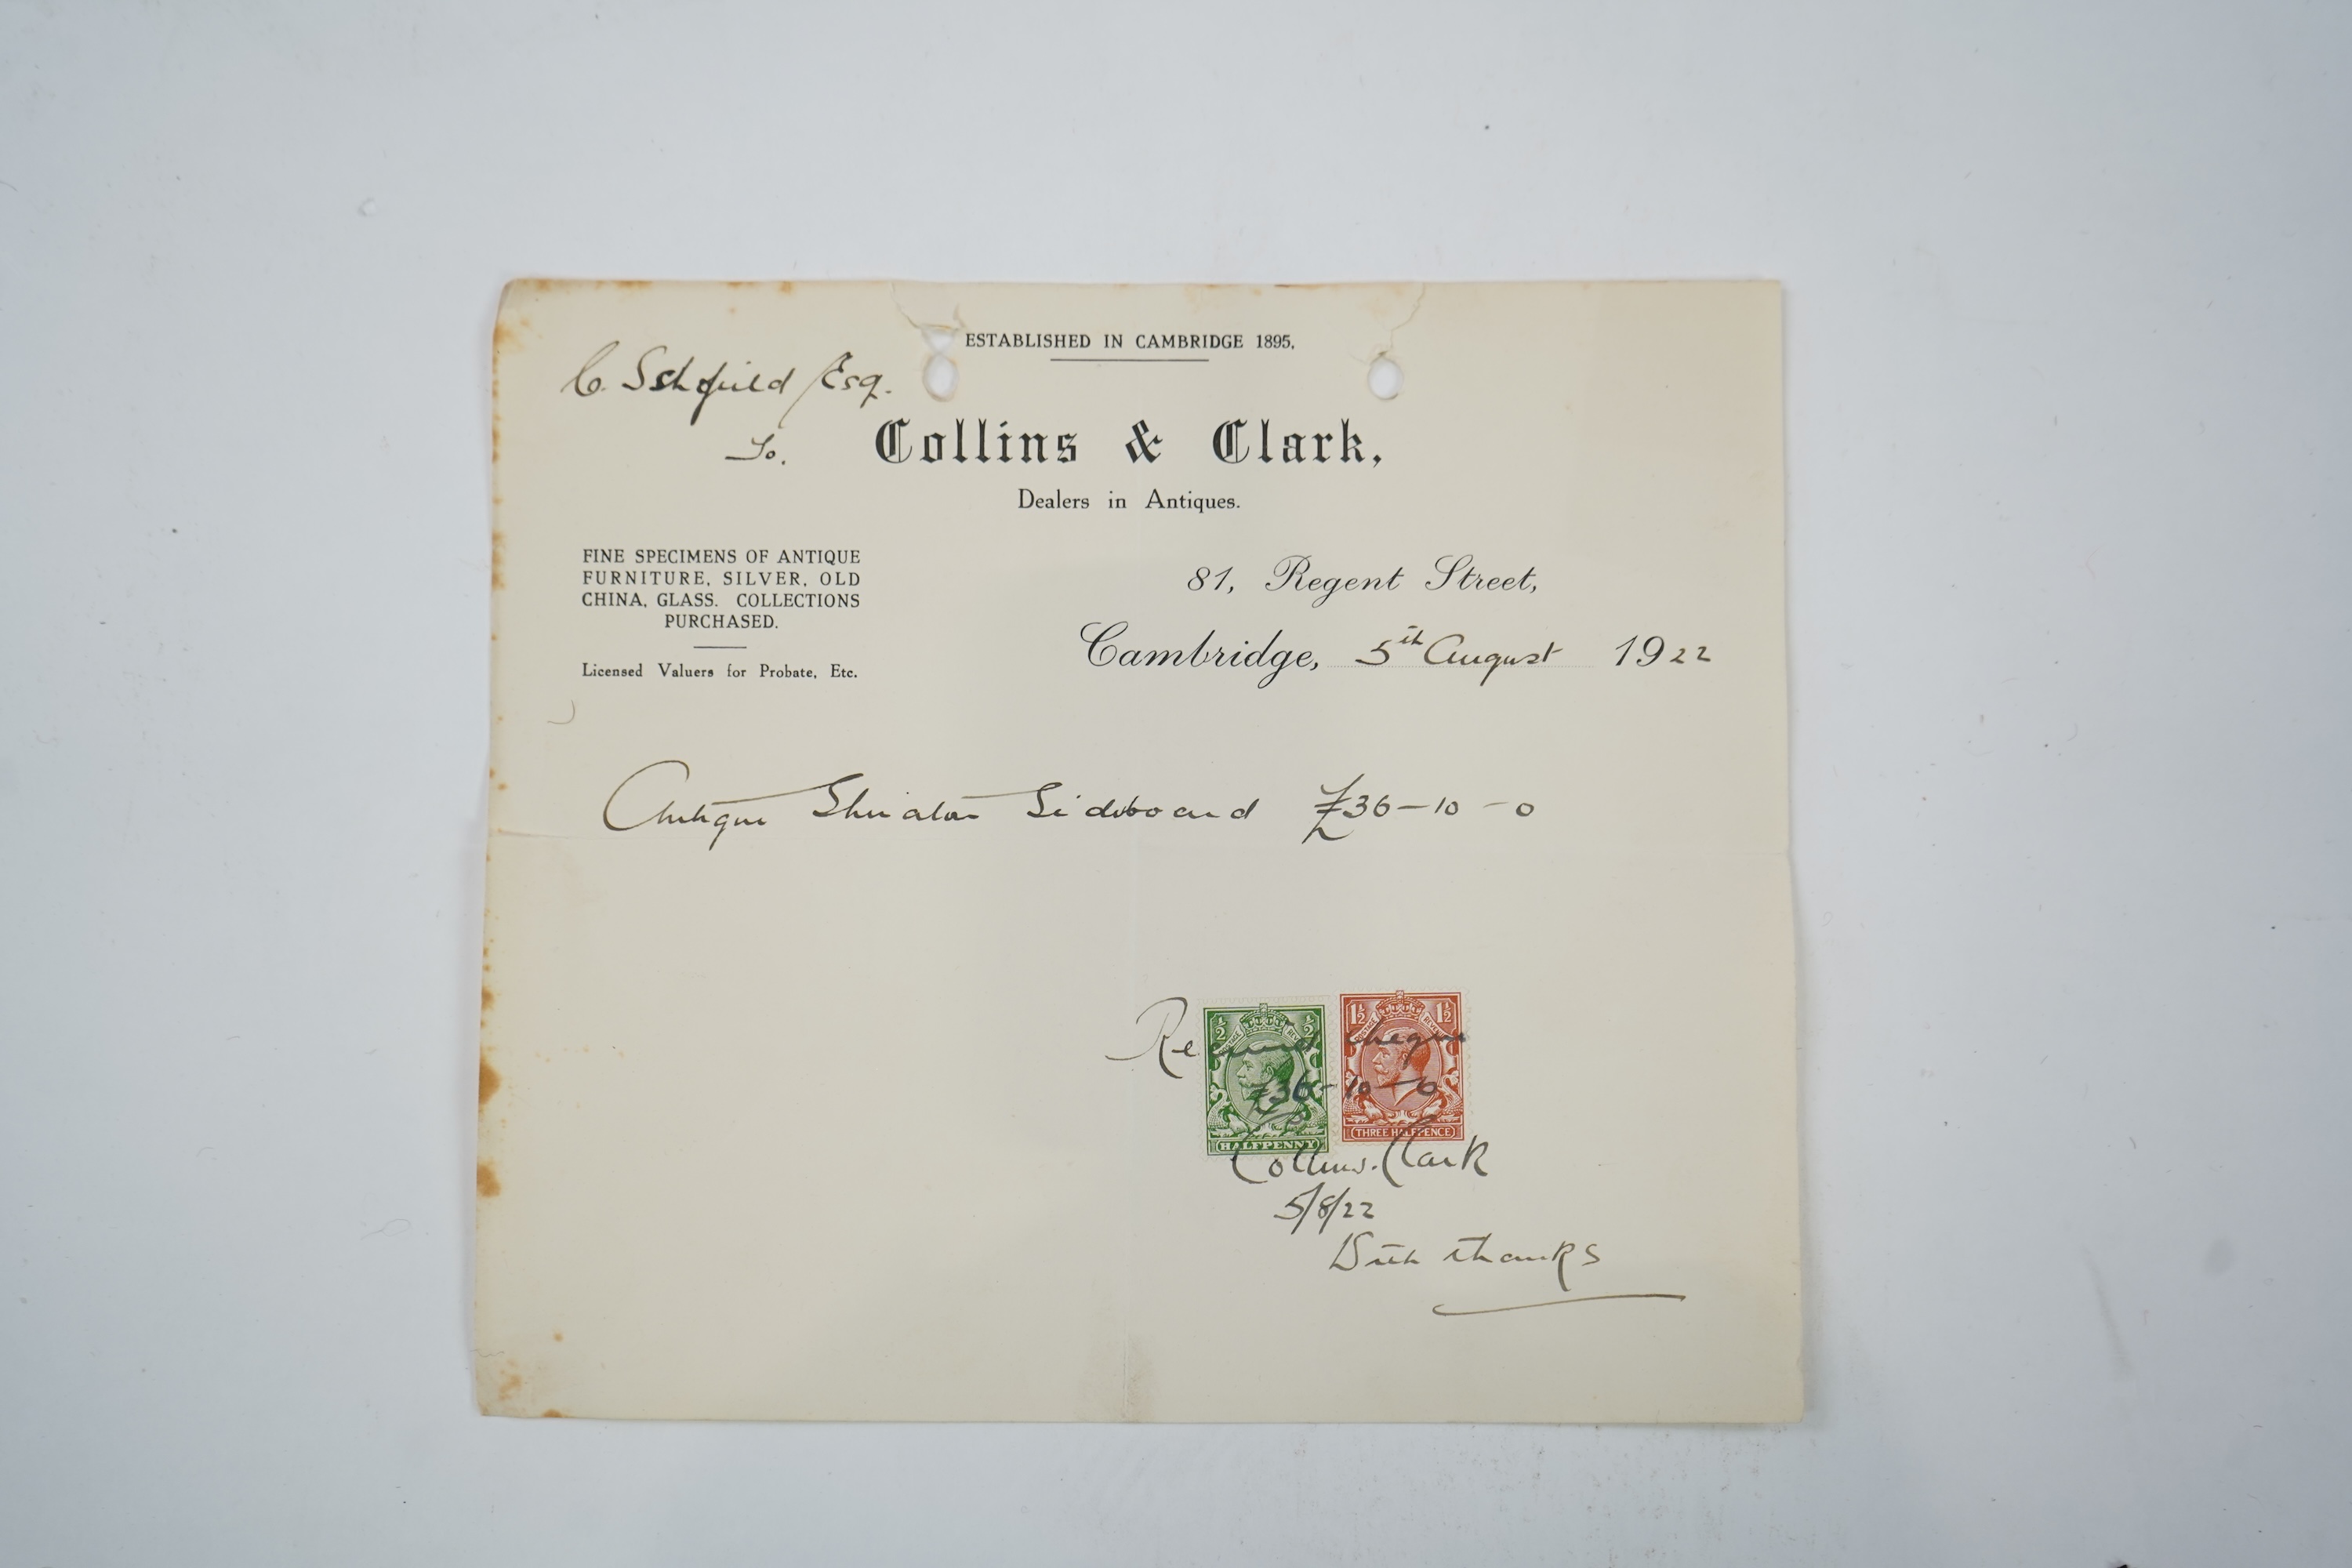 ESTABLISHED IN CAMBRIDGE 1895.
C. Schofield Esq.
To. Collins & Clark,
Dealers in Antiques.
FINE SPECIMENS OF ANTIQUE
FURNITURE, SILVER, OLD
CHINA, GLASS. COLLECTIONS
PURCHASED.
Licensed Valuers for Probate, Etc.
81, Regent Street,
Cambridge, 5th August 1922
Antique Sheraton Sideboard £36-10-0
½ ½ 1½ 1½
POSTAGE REVENUE
Received cheque
£36-10-0
HALFPENNY THREE HALFPENCE
Collins. Clark
5/8/22
With thanks